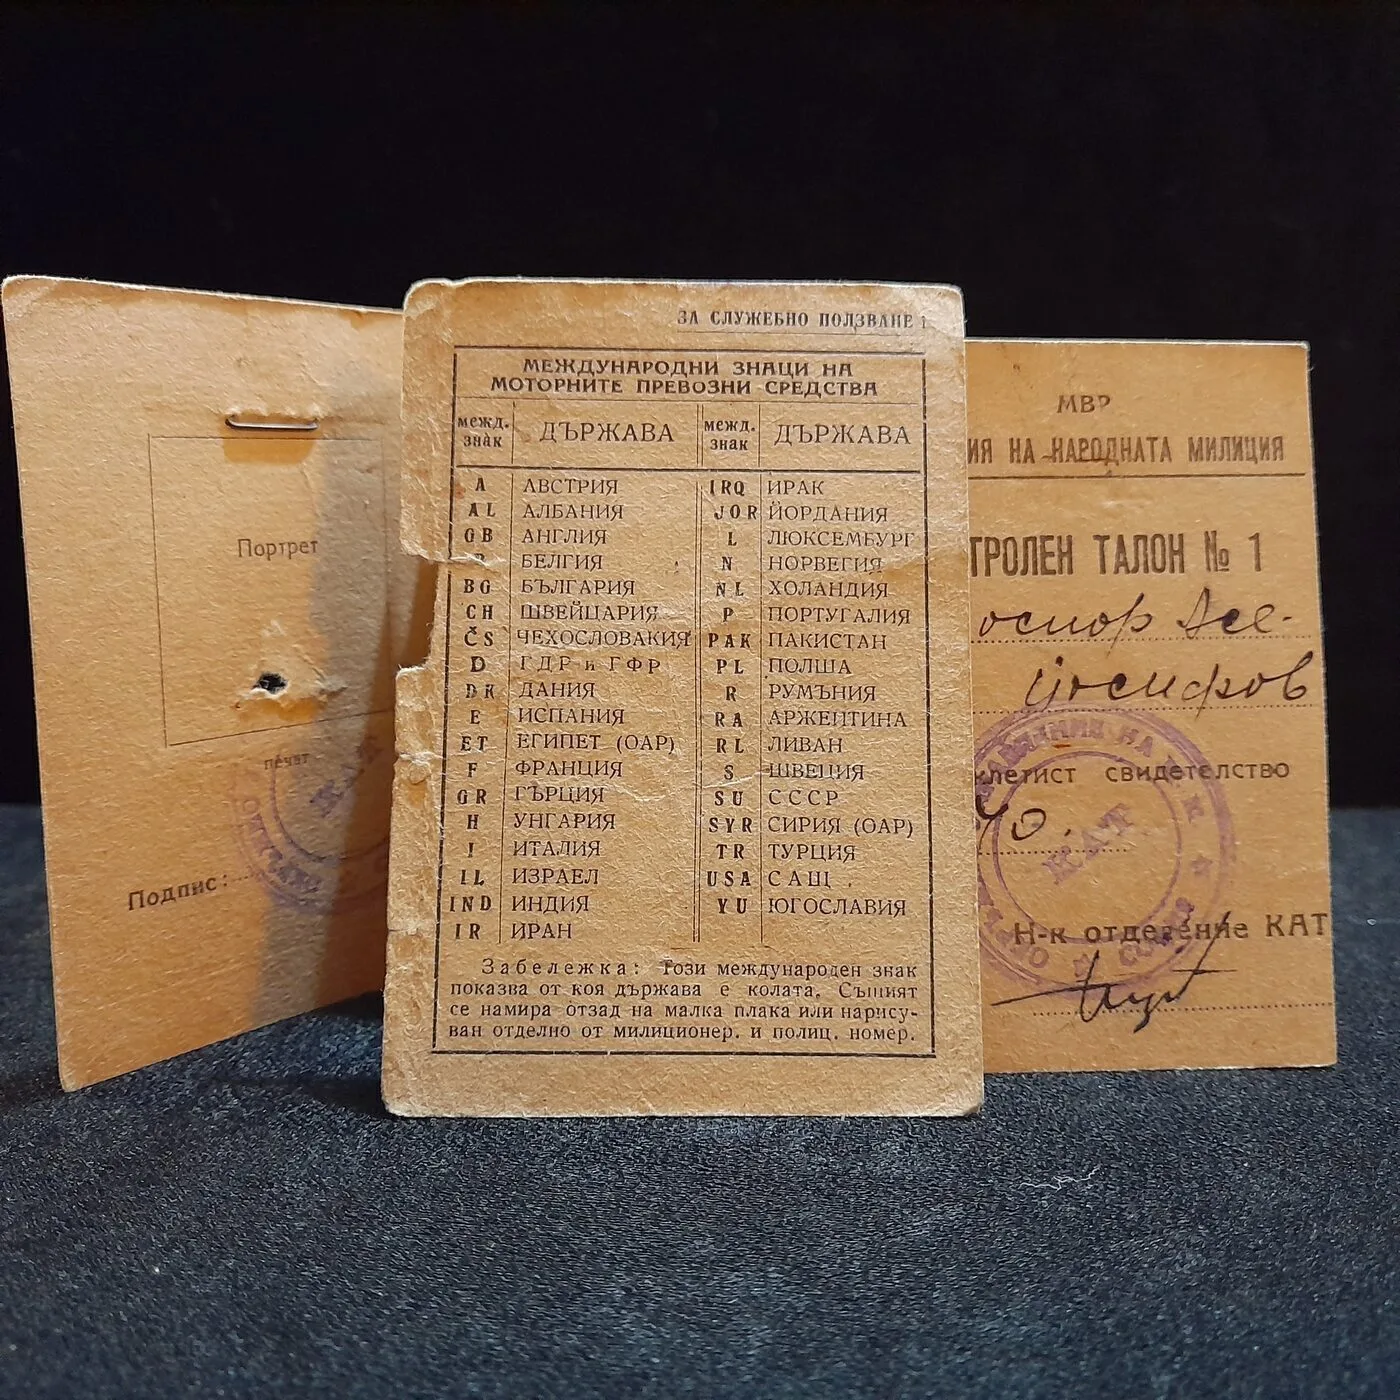 Портрет
печат
Подпис:
ЗА СЛУЖЕБНО ПОЛЗВАНЕ
МЕЖДУНАРОДНИ ЗНАЦИ НА
МОТОРНИТЕ ПРЕВОЗНИ СРЕДСТВА
межд. знак ДЪРЖАВА межд. знак ДЪРЖАВА
A АВСТРИЯ IRQ ИРАК
AL АЛБАНИЯ JOR ЙОРДАНИЯ
GB АНГЛИЯ L ЛЮКСЕМБУРГ
БЕЛГИЯ N НОРВЕГИЯ
BG БЪЛГАРИЯ NL ХОЛАНДИЯ
CH ШВЕЙЦАРИЯ P ПОРТУГАЛИЯ
ČS ЧЕХОСЛОВАКИЯ PAK ПАКИСТАН
D ГДР и ГФР PL ПОЛША
DK ДАНИЯ R РУМЪНИЯ
E ИСПАНИЯ RA АРЖЕНТИНА
ET ЕГИПЕТ (ОАР) RL ЛИВАН
F ФРАНЦИЯ S ШВЕЦИЯ
GR ГЪРЦИЯ SU СССР
H УНГАРИЯ SYR СИРИЯ (ОАР)
I ИТАЛИЯ TR ТУРЦИЯ
IL ИЗРАЕЛ USA САЩ
IND ИНДИЯ YU ЮГОСЛАВИЯ
IR ИРАН
Забележка: Този международен знак
показва от коя държава е колата. Същият
се намира отзад на малка плака или нарису-
ван отделно от милиционер. и полиц. номер.
МВР
ИЯ НА НАРОДНАТА МИЛИЦИЯ
ТРОЛЕН ТАЛОН № 1
осиф Асе-
Йосифов
летист свидетелство
КАТ
Н-к отделение КАТ